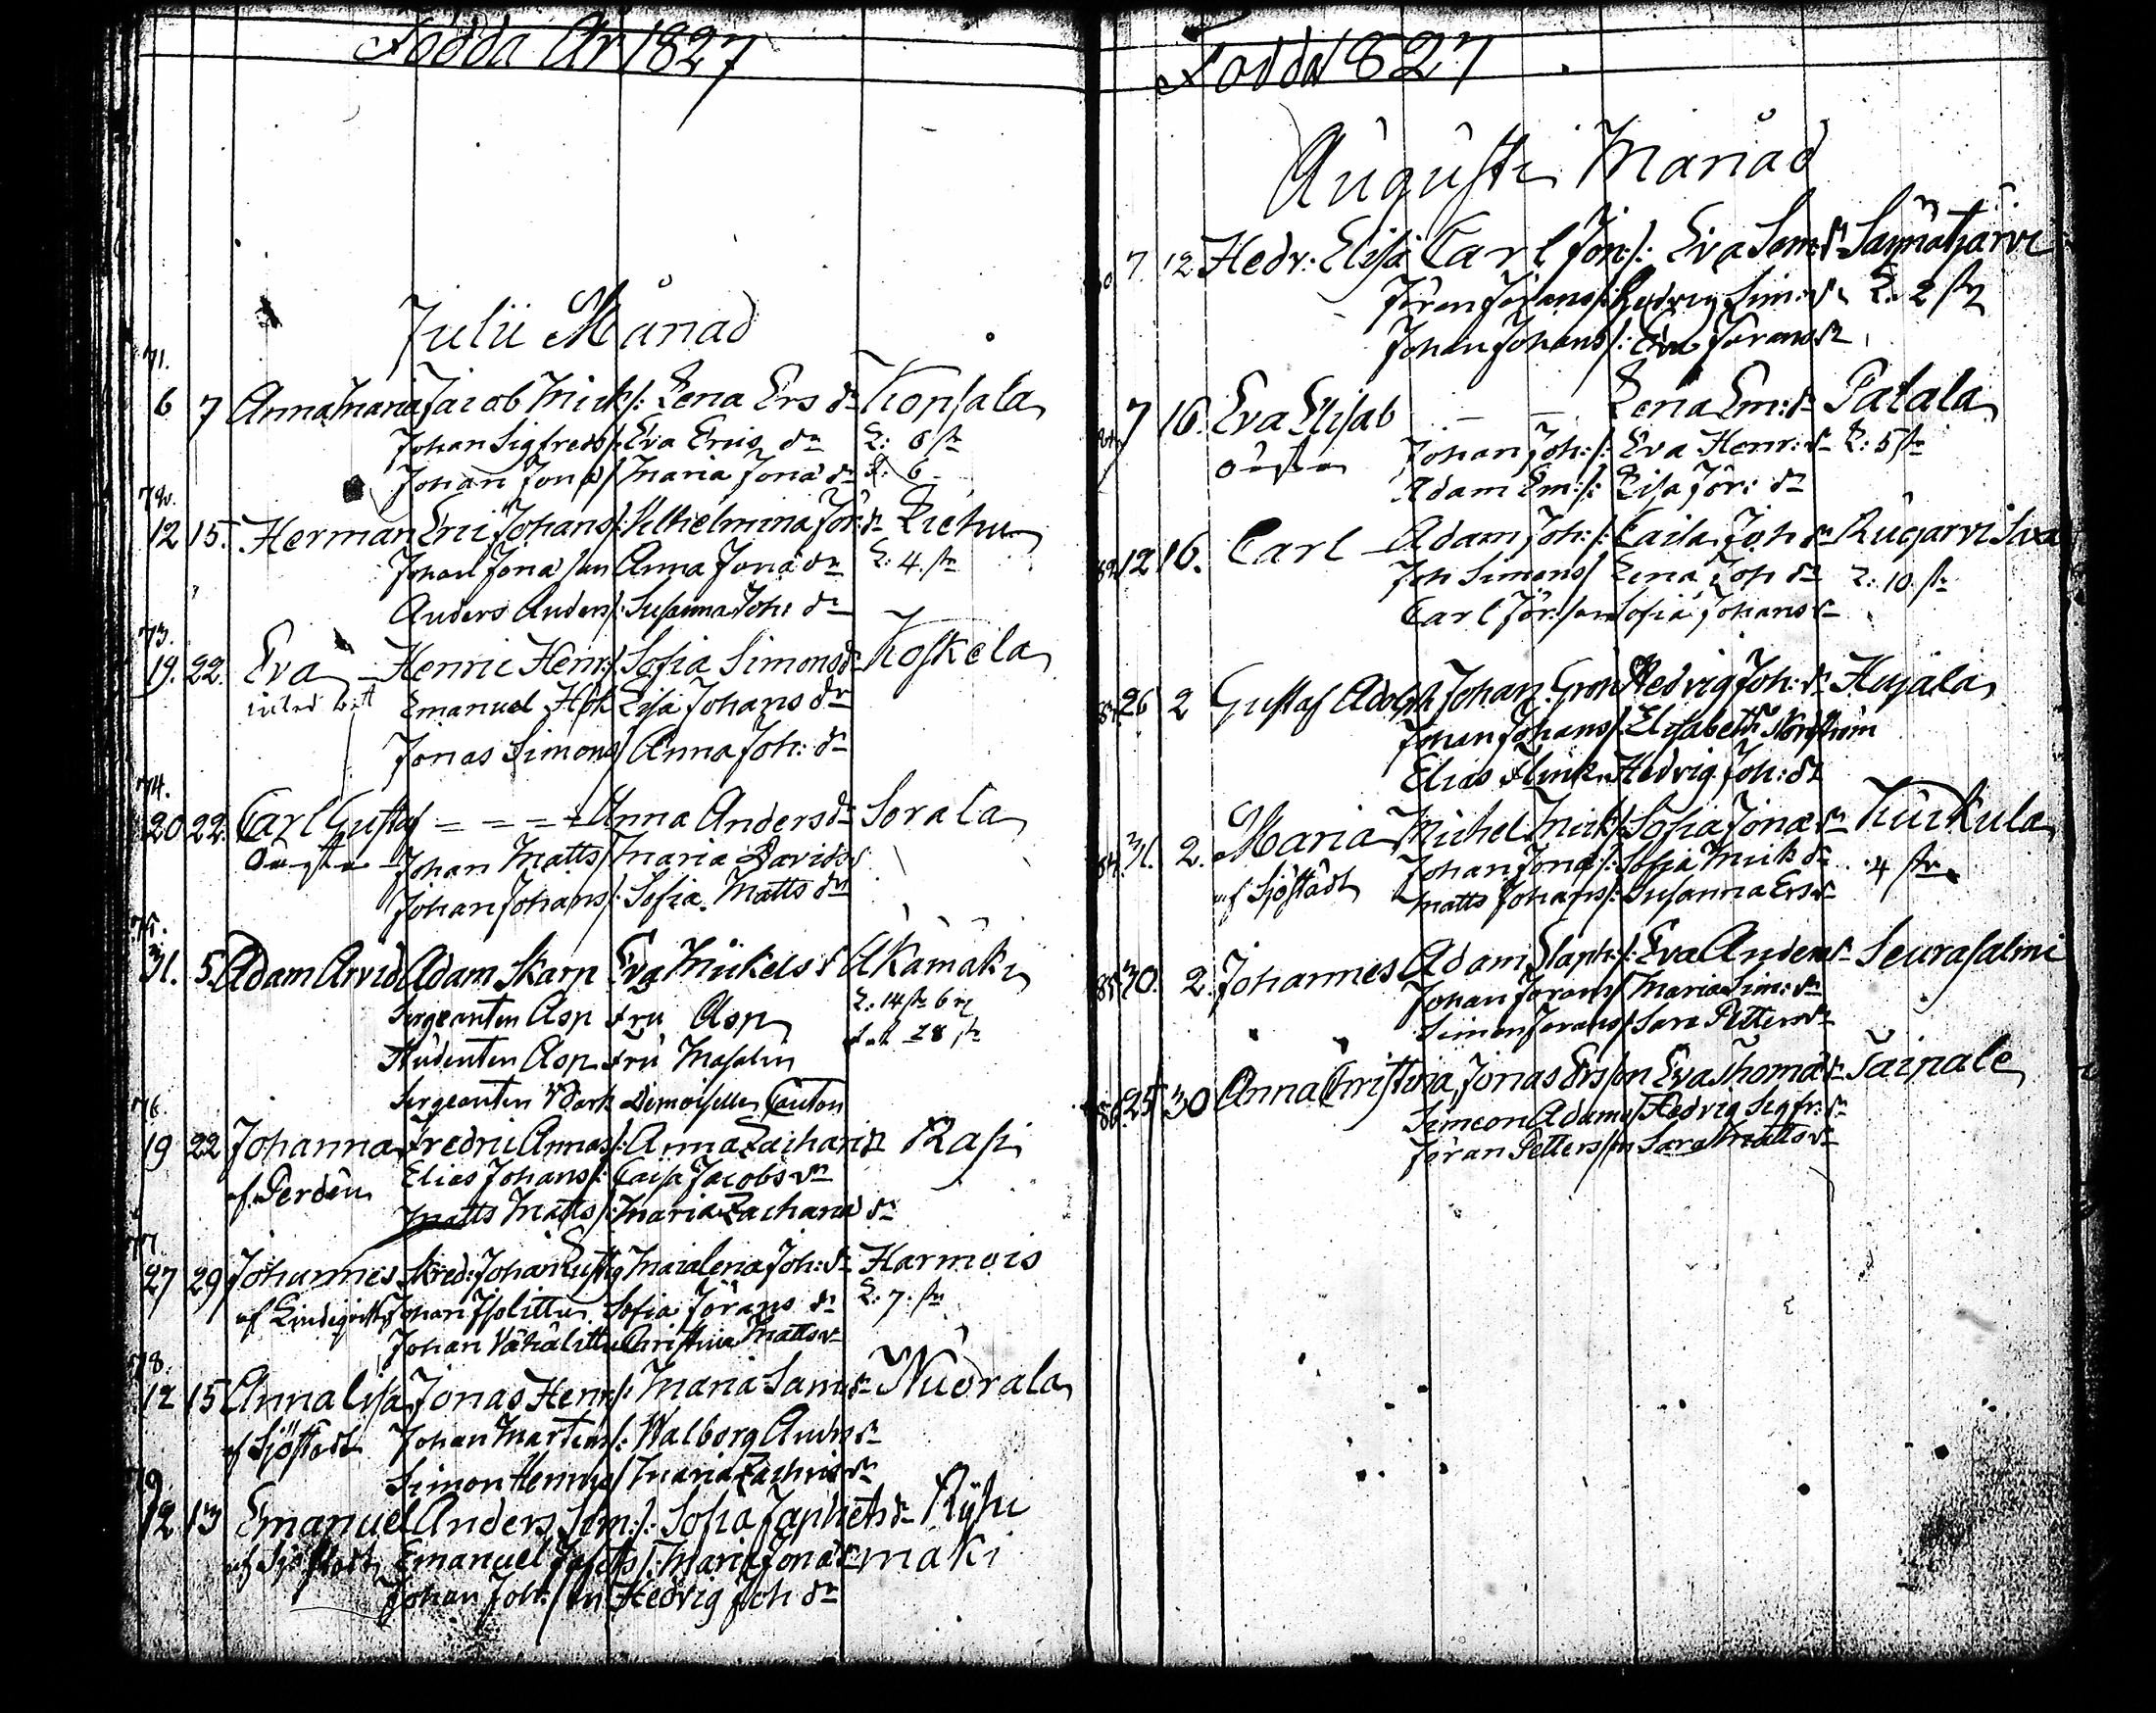 Födda År 1827
Julii Månad
71.
6 7 Anna Maria Jacob Mick /: Lena Ers dr Kopsala
Johan Sigfreds /: Eva Eriis dr L: 6 st
Johan Jona / Maria Jona dr L: 6
72.
12 15. Herman Eric Johans /: Vilhelmina Jör: dr Liehu
Johan Jona son Anna Jona dr L: 4 st
Anders Anders /: Susanna Joh: dr
73.
19. 22. Eva Henric Henr / Sofia Simons dr Koskela
Emanuel Hök Lisa Johans dr
Jonas Simons / Anna Joh: dr
74.
20 22. Carl Gustaf = = = = Anna Anders dr Sorala
Oäkta Johan Matts / Maria Davids dr
Johan Johans /: Sofia Matts dr
75.
31. 5. Adam Arvid Adam Skarp Eva Mickels dr Akamäki
Sergeanten Asp Fru Asp L: 14 st 6
Studenten Asp Fru Masalin 18 st
Sergeanten Wark Demoiselle Canton
76.
19 22 Johanna Fredric Annas /: Anna Zacharia dr Rasi
af Perdén Elias Johans /: Caisa Jacobs dr
Matts Matts /: Maria Zacharia dr
77
27 29 Johannes Skred: Johan Maialena Joh: dr Harmois
af Lindqvist Johan Isolittu Sofia Jörans dr L: 7. st
Johan Vähälittu Christina Matts dr
78.
12 15 Anna Lisa Jonas Henr /: Maria Sam: dr Nuorala
af Sjöstedt Johan Martins /: Walborg Anders dr
Simon Henrics / Maria Zachris dr
79
12 13 Emanuel Anders Sim: /: Sofia Japhets dr Ryhi
af Sjöstedt Emanuel Jafets /: Maria Jona dr mäki
Johan Joh: son Hedvig Joh dr
Födda 1827
Augusti Månad
80 7. 12 Hedv: Elisa Carl Jon: /: Eva Sam: dr Säynätjärvi
Jöran Jörans /: Hedvig Sim: dr L. 2 st
Johan Johans /: Eva Jörans dr
7 16. Eva Elisab — — Lena Em: dr Patala
Oäkta Johan Joh: /: Eva Henr: dr L: 5 st
Adam Em: /: Lisa Jör: dr
82 12 16. Carl Adam Joh: /: Caisa Joh dr
Joh Simons / Lena Joh dr L: 10. st
Carl Jör: son Sofia Johans dr
26 2 Gustaf Adolph Johan Grön Hedvig Joh: dr Hujala
Johan Johans / Elisabeth
Elias Flink Hedvig Joh: dr
84. 31. 2. Maria Michel Mick / Sofia Jona dr Kurkula
af Sjöstedt Johan Jona /: Sofia Mick dr 4 st
Matts Johans /: Susanna Ers dr
85 30. 2. Johannes Adam Staph: /: Eva Anders dr Seurasalmi
Johan Jörans / Maria Sim: dr
Simon Jörans / Sara Petters dr
86 25 30 Anna Christina Jonas Ersson Eva Thoma dr Taipale
Simeon Adams / Hedvig Sigfr: dr
Jöran Petterson Sara Matts dr